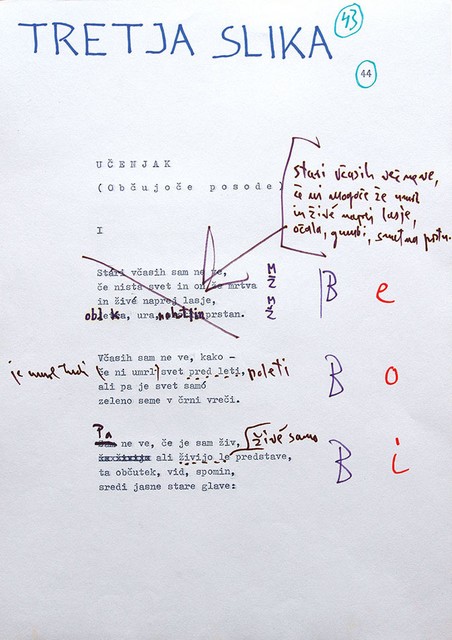 TRETJA SLIKA
43
44
UČENJAK
(Občujoče posode)
I
stari včasih več ne ve,
če ni mogoče že umrl
in živé naprej lasje,
očala, gumbi, smet na prstu.
Stari včasih sam ne ve,
če nista svet in on že mrtva
in živé naprej lasje,
obleka, ura, prstan.
M
Ž
M
Ž
B e
Včasih sam ne ve, kako –
je umrl tudi
če ni umrl svet pred leti, poleti
ali pa je svet samó
zeleno seme v črni vreči.
B o
Pa
ne ve, če je sam živ, živé samo
ali živijo le predstave,
ta občutek, vid, spomin,
sredi jasne stare glave:
B i